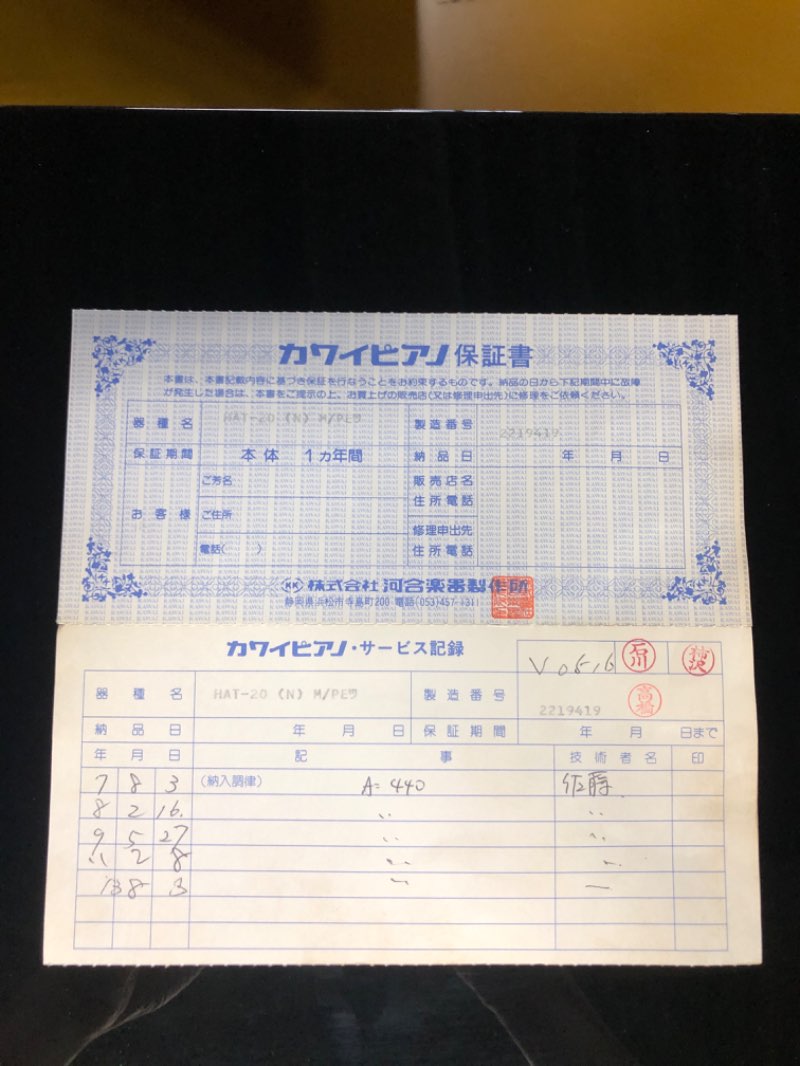 カワイピアノ保証書
本書は、本書記載内容に基づき保証を行なうことをお約束するものです。納品の日から下記期間中に故障
が発生した場合は、本書をご提示の上、お買上げの販売店(又は修理申出先)に修理をご依頼ください。
器種名 HAT-20 (N) M/PEウ 製造番号 2219419
保証期間 本体 1ヵ年間 納品日 年 月 日
お客様
ご芳名
ご住所
電話( )
販売店名
住所電話
修理申出先
住所電話
KK 株式会社 河合楽器製作所
静岡県浜松市寺島町200 電話(053)457-1311
カワイピアノ・サービス記録
V 05.16 石川
高橋
器種名 HAT-20 (N) M/PEウ 製造番号 2219419
納品日 年 月 日 保証期間 年 月 日まで
年 月 日 記 事 技術者名 印
7 8 3 (納入調律) A=440 佐藤
8 2 16. 〃 〃
9 5 27 〃 〃
11 2 8 〃 〃
13 8 3 〃 —